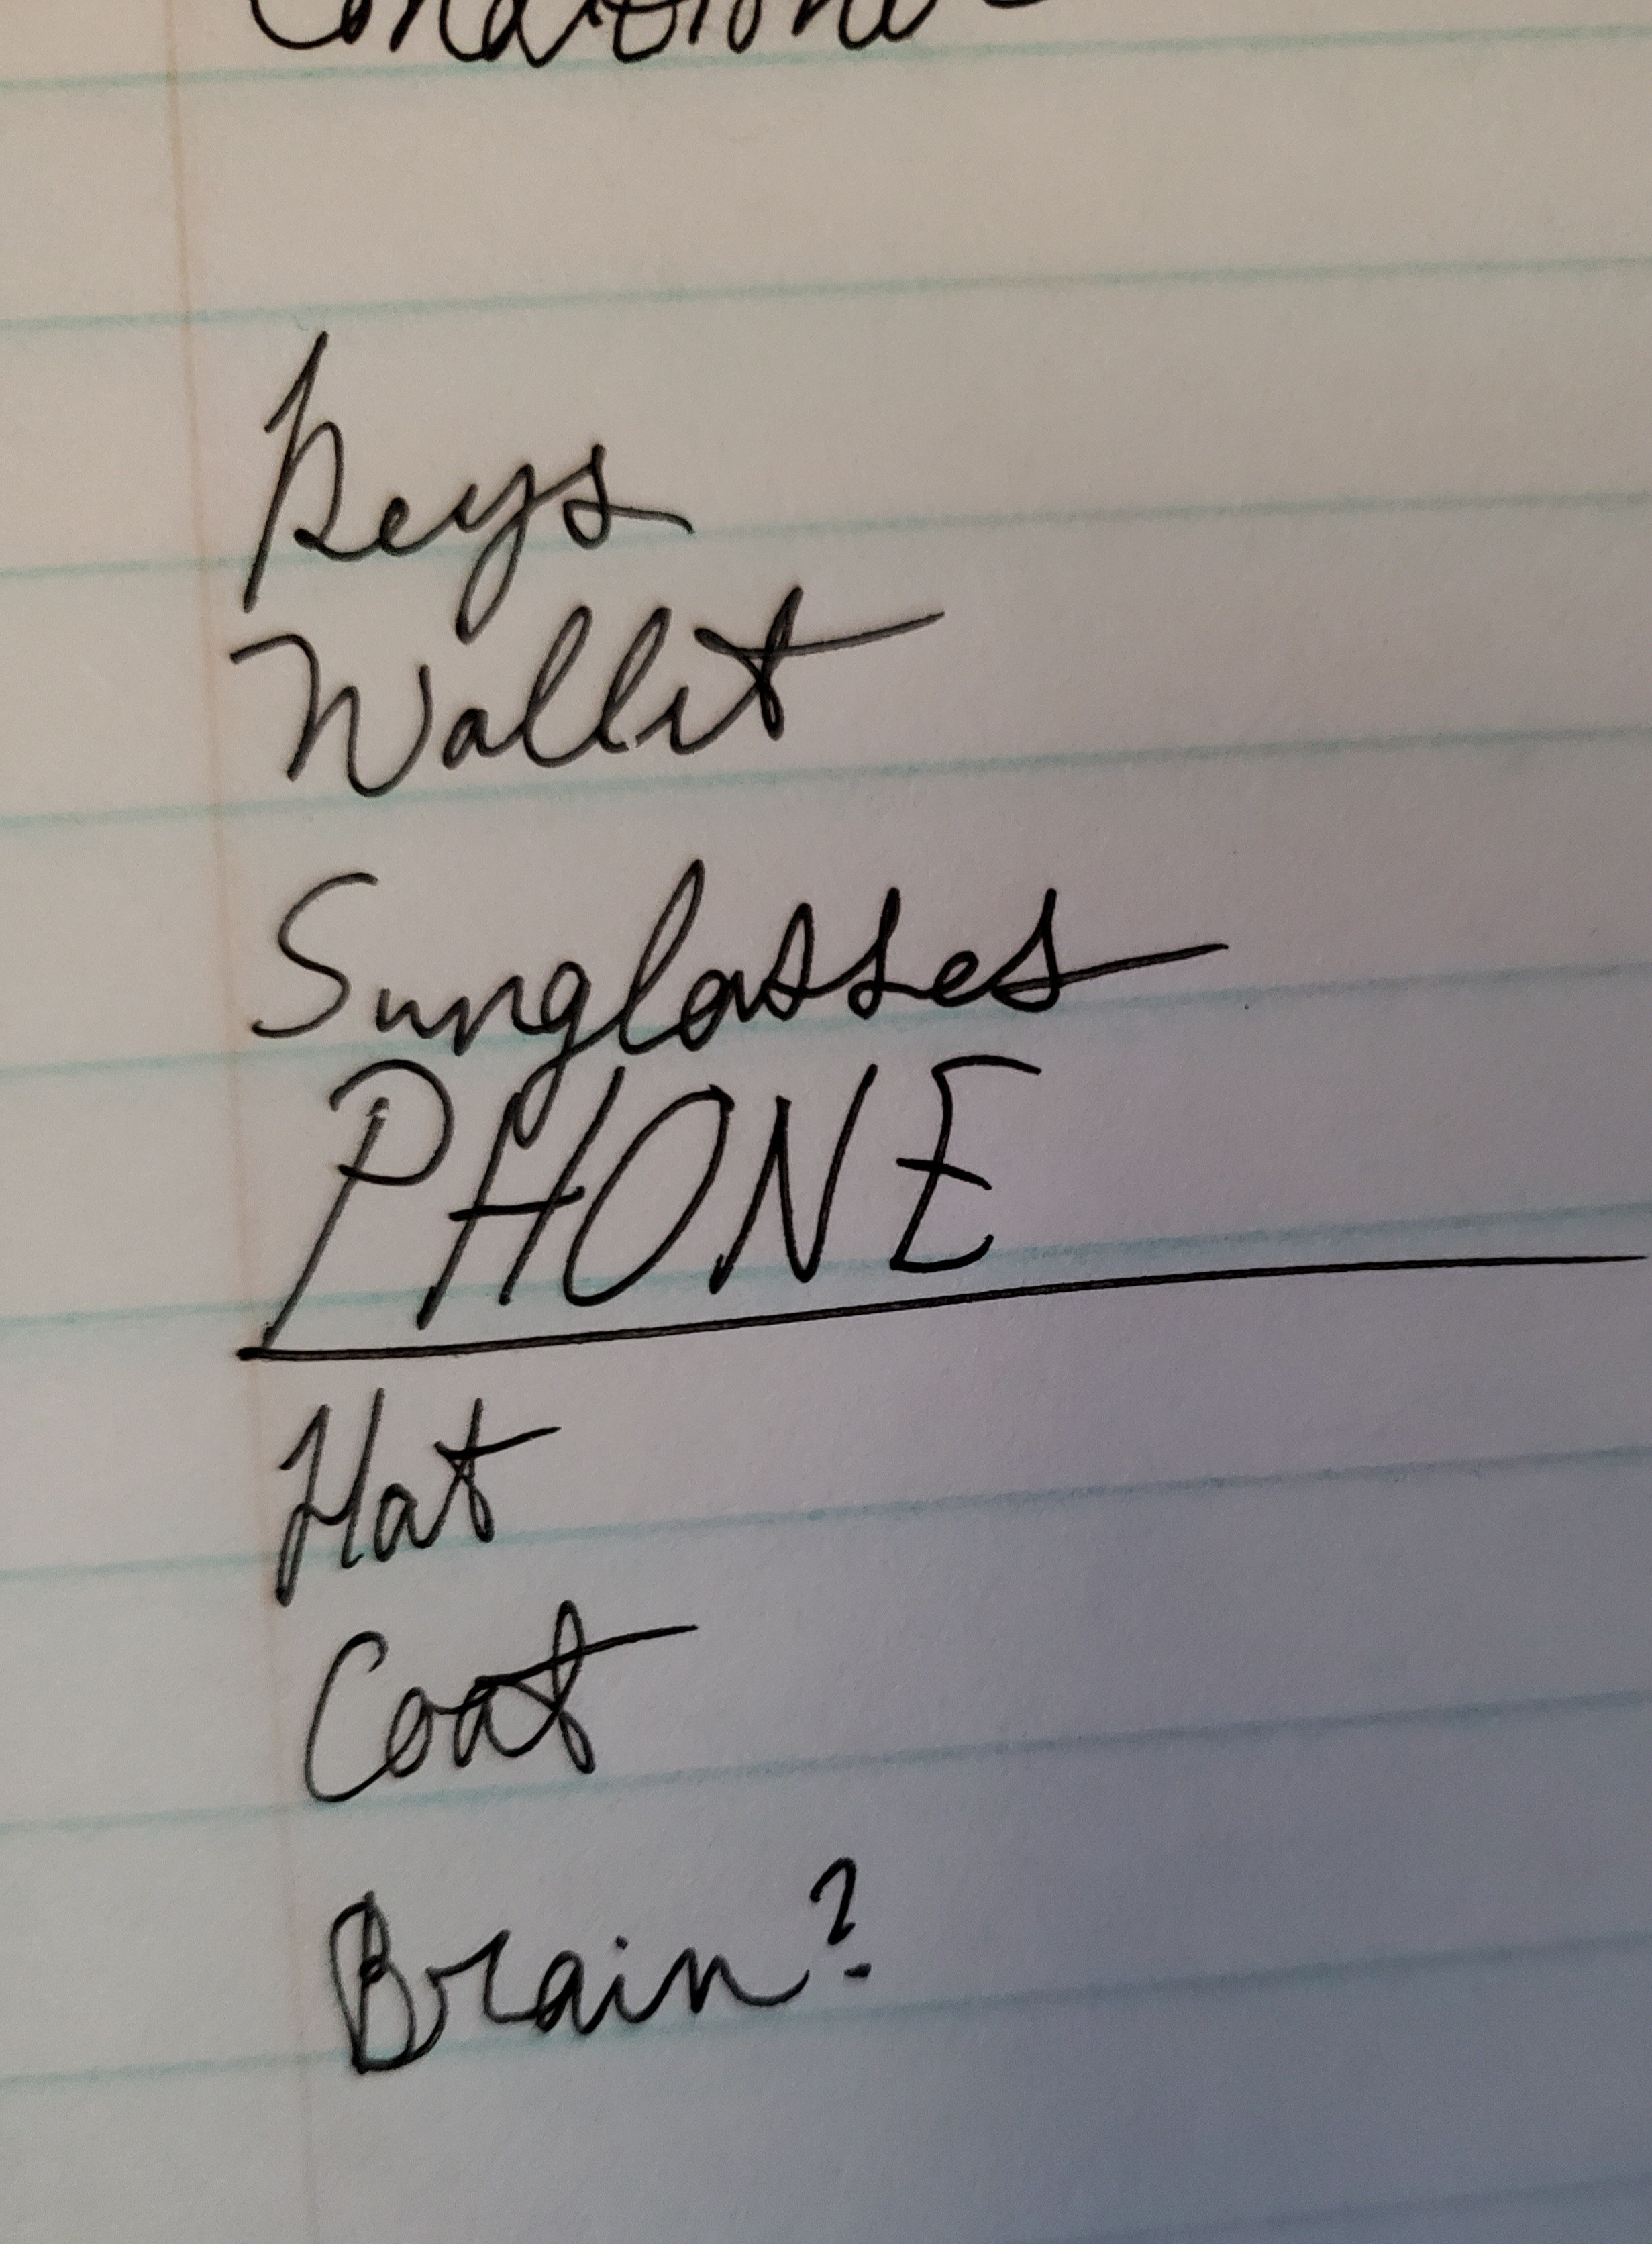 Conditioner
Keys
Wallet
Sunglasses
PHONE
Hat
Coat
Brain?